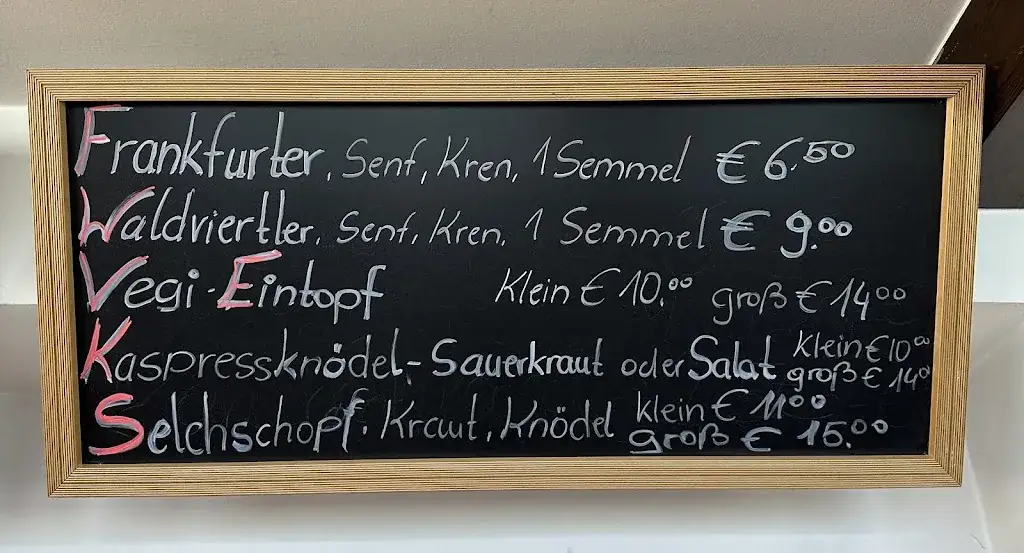 Frankfurter, Senf, Kren, 1 Semmel € 6.50
Waldviertler, Senf, Kren, 1 Semmel € 9.00
Vegi-Eintopf Klein € 10.00 groß € 14 00
Kaspressknödel,- Sauerkraut oder Salat klein € 10 00
groß € 14 00
Selchschopf, Kraut, Knödel klein € 11 00
groß € 15.00